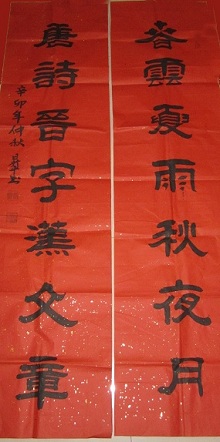 春雲夏雨秋夜月
唐詩晉字漢文章
辛卯年仲秋